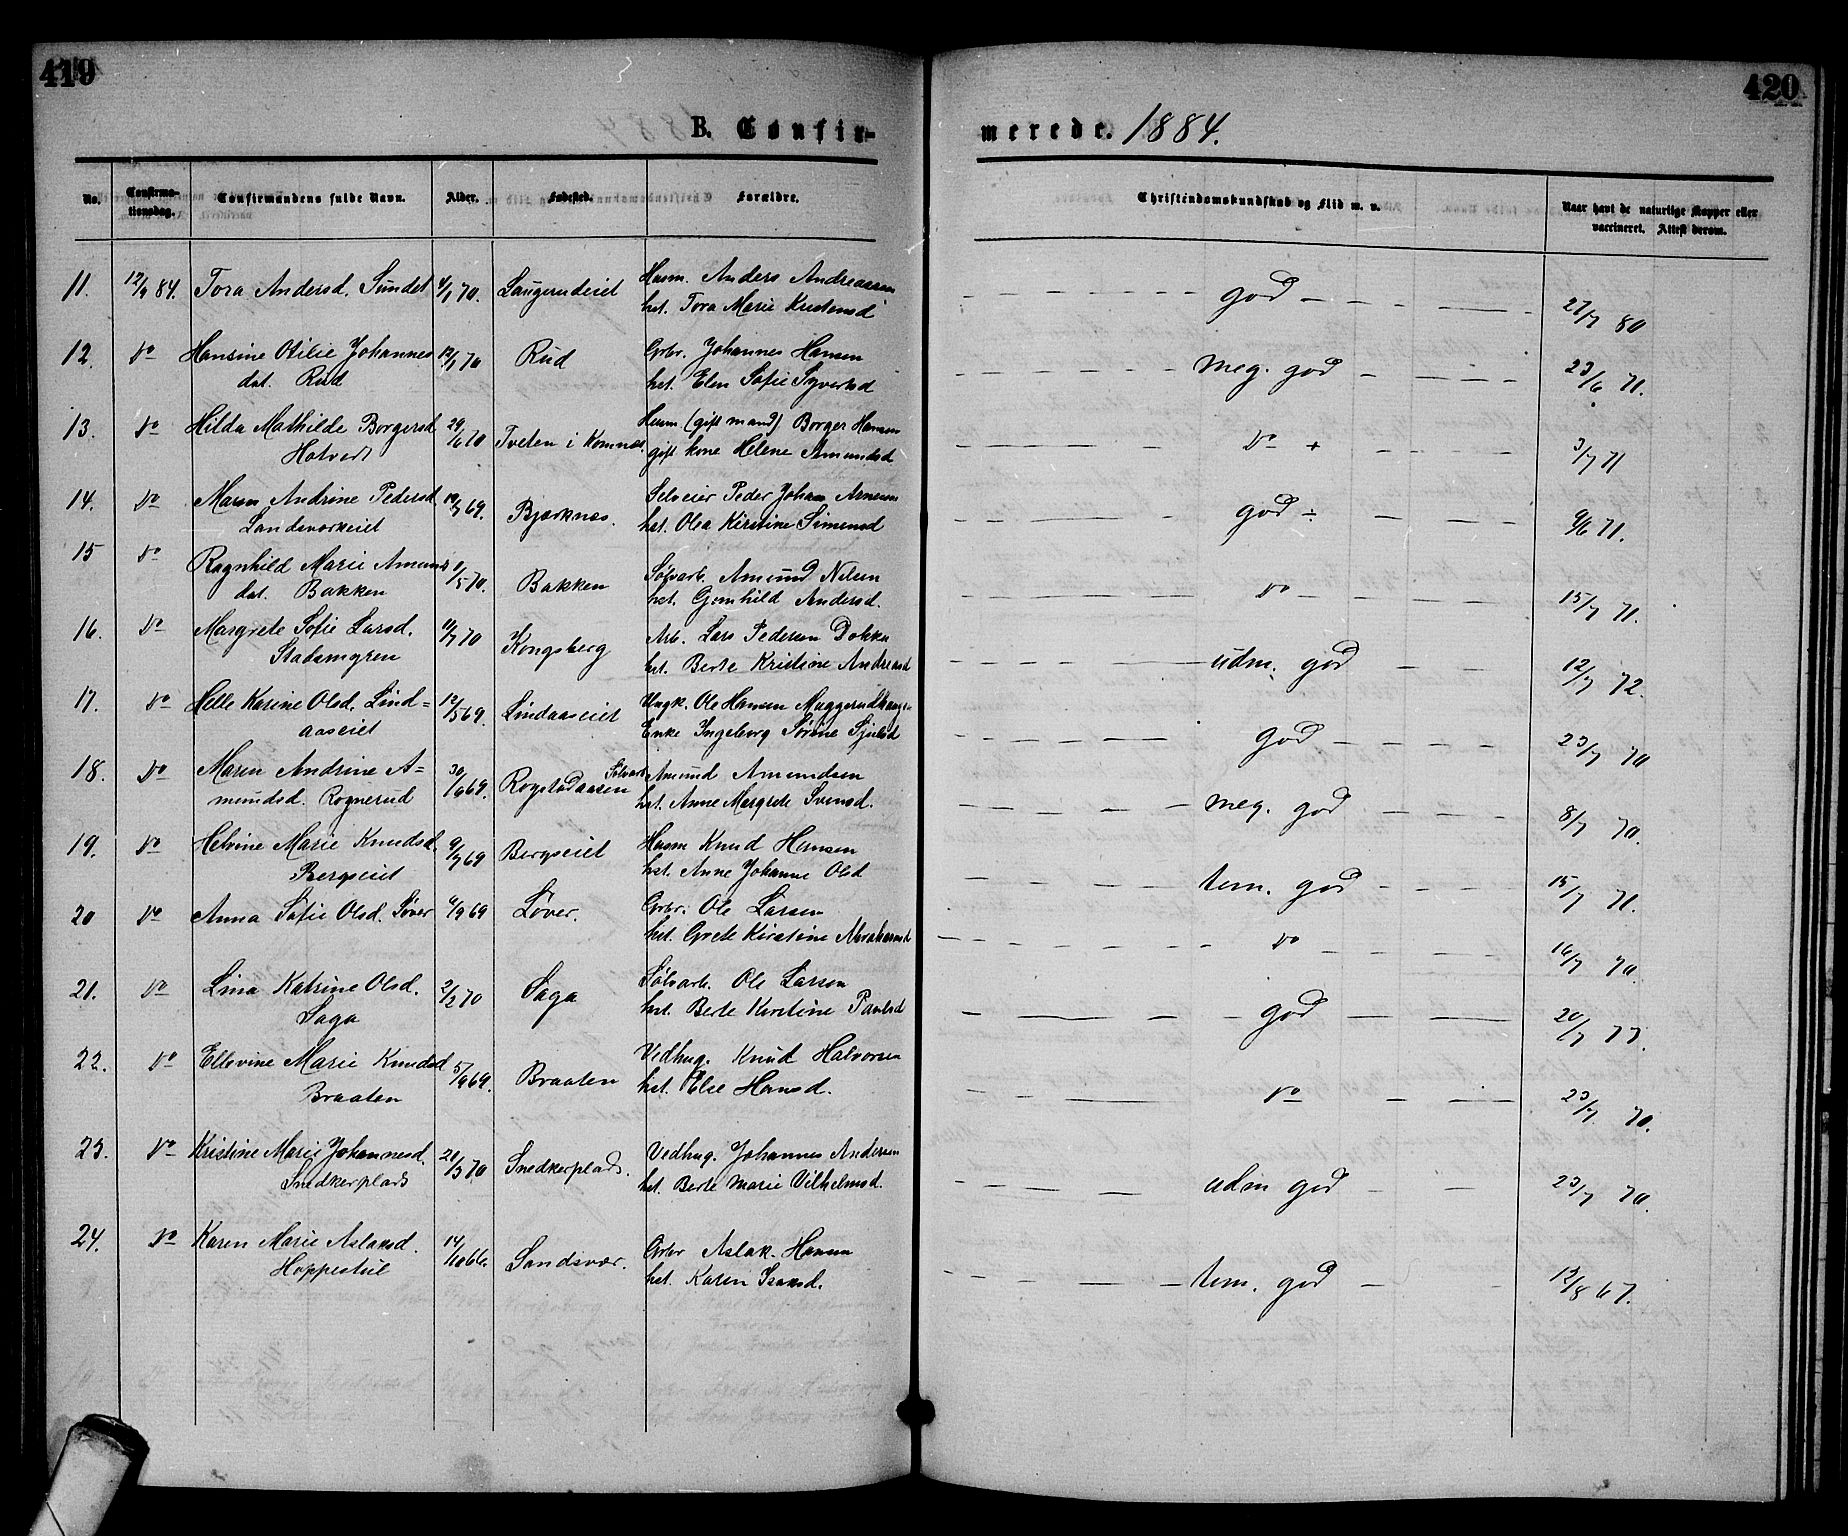 419
420
B. Confir-
merede. 1884.
No.
Confirma-
tionsdag.
Confirmandens fulde Navn.
Alder.
Fødested.
Forældre.
Christendomskundskab og Flid m. v.
Naar havt de naturlige Kopper eller
vaccineret. Attest derom.
11. 12/4 84. Tora Andersd. Sundet 4/1 70. Laugerudeiet Husm. Anders Andreassen god 27/7 80
hst. Tora Marie Kristensd
12. Do Hansine Otilie Johannes 12/1 70 Rud Grbr. Johannes Hansen meg. god 23/6 71.
dat. Rud hst. Elen Sofie Syvertsd
13. Do Hilda Mathilde Borgersd 29/6 70 Tveten i Komnæs. Husm (gift mand) Borger Hansen Do + 3/7 71
Hotvedt gift kone Helene Amundsd
14. Do Maren Andrine Pedersd. 19/7 69. Bjørknæs. Selveier Peder Johan Arnesen god ÷ 9/6 71.
Landsværkeiet hst. Olea Kirstine Simensd
15 Do Ragnhild Marie Amunds 9/5 70. Bakken Sølvarb. Amund Nilsen Do 15/7 71.
dat. Bakken hst. Gunhild Andersd.
16. Do Margrete Sofie Larsd. 11/7 70 Kongsberg Arb. Lars Pedersen Dokka udm. god 12/7 72.
Stadsmyren hst. Berte Kristine Andreasd
17. Do Helle Karine Olsd. Lind= 12/5 69. Lindaaseiet Ungk. Ole Hansen Muggerudhaugen god 23/7 70
aaseiet Enke Ingeborg Sørine Sjulsd
18. Do Maren Andrine A= 30/9 69. Rogstadaasen Sølvarb Amund Amundsen meg. god 8/7 70.
mundsd. Rognerud hst. Anne Margrete Svensd.
19. Do Helvine Marie Knudsd. 9/7 69 Bergseiet Husm Knud Hansen tem. god 15/7 71.
Bergseiet hst. Anne Johanne Olsd
20 Do Anna Sofie Olsd. Løver 4/9 69 Løver. Grbr. Ole Larsen Do 16/7 70.
hst. Grete Kirstine Abrahamsd
21. Do Lina Katrine Olsd. 2/2 70 Saga Sølvarb. Ole Larsen god 20/7 77.
Saga hst. Berte Kirstine Paulsd
22. Do Ellevine Marie Knudsd 5/9 69. Braaten Vedhug. Knud Halvorsen Do 23/7 70.
Braaten hst. Else Hansd.
23. Do Kristine Marie Johannesd. 20/3 70 Snedkerplads. Vedhug. Johannes Andersen udm god 23/7 70.
Snedkerplads hst. Berte Marie Vilhelmsd.
24. Do Karen Marie Aslaksd. 14/10 66. Sandsvær. Grbr Aslak Hansen tem. god 12/8 67.
Hoppestul hst. Karen Isaksd.